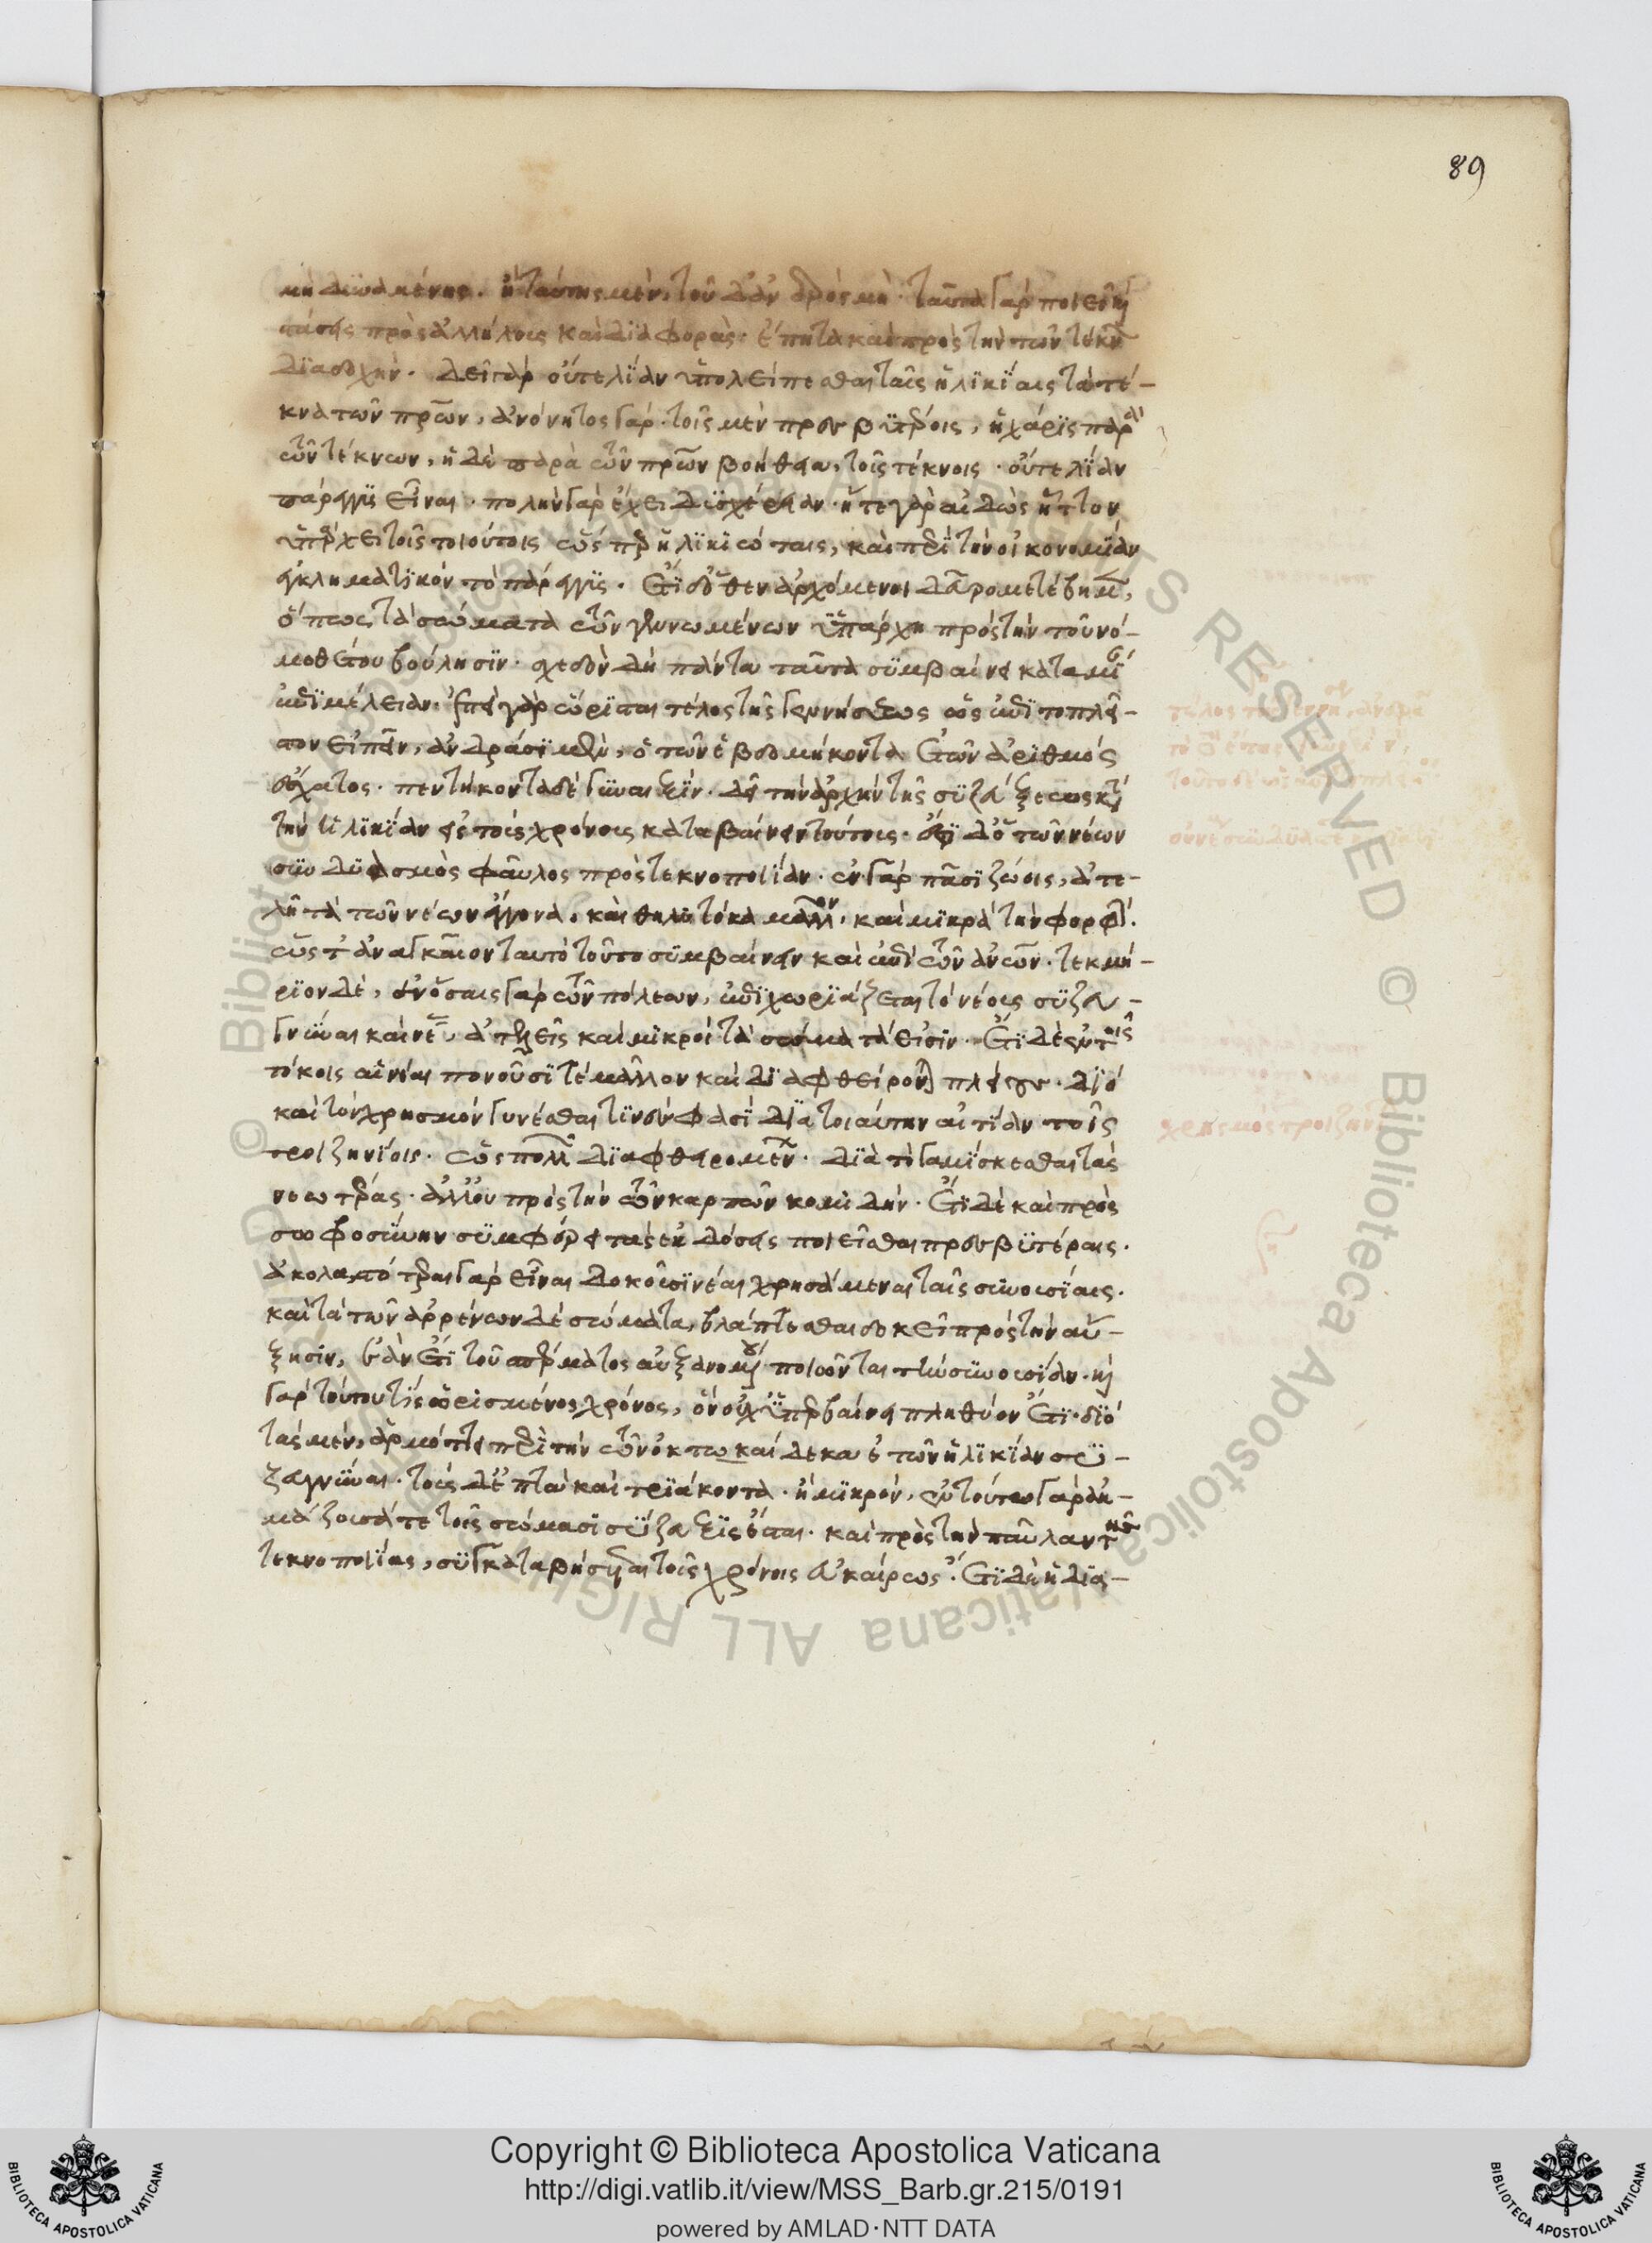 89
μὴ δυναμένης. ἢ ταύτης μὲν, τοῦ δ' ἀνδρὸς μή. ταῦτα γὰρ ποιεῖ καὶ
στάσεις πρὸς ἀλλήλους καὶ διαφοράς. ἔπειτα καὶ πρὸς τὴν τῶν τέκνων
διαδοχήν. δεῖ γὰρ οὔτε λίαν ὑπολείπεσθαι ταῖς ἡλικίαις τὰ τέ-
κνα τῶν πρων, ἀνόνητος γὰρ τοῖς μὲν πρεσβυτέροις, ἡ χάρις παρὰ
τῶν τέκνων, ἡ δὲ παρὰ τῶν πρων βοήθεια, τοῖς τέκνοις. οὔτε λίαν
πάρεγγυς εἶναι. πολλὴν γὰρ ἔχει δυσχέρειαν. ἥ τε γὰρ αἰδὼς ἧττον
ὑπάρχει τοῖς τοιούτοις ὥσπερ ἡλικιώταις, καὶ περὶ τὴν οἰκονομίαν
ἐγκληματικὸν τὸ πάρεγγυς. ἔτι δ' ὅθεν ἀρχόμενοι δεῦρο μετέβημεν,
ὅπως τὰ σώματα τῶν γεννωμένων ὑπάρχη πρὸς τὴν τοῦ νο-
μοθέτου βούλησιν. σχεδὸν δὴ πάντα ταῦτα συμβαίνει κατὰ μίαν
ἐπιμέλειαν. ἐπεὶ γὰρ ὥρισται τέλος τῆς γεννήσεως ὡς ἐπὶ τὸ πλεῖ-
στον εἰπεῖν, ἀνδράσι μὲν, ὁ τῶν ἑβδομήκοντα ἐτῶν ἀριθμὸς
ἔσχατος. πεντήκοντα δὲ γυναιξίν. δεῖ τὴν ἀρχὴν τῆς συζεύξεως κατὰ
τὴν ἡλικίαν εἰς τοὺς χρόνους καταβαίνειν τούτους. ἔστι δ' ὁ τῶν νέων
συνδυασμὸς φαῦλος πρὸς τεκνοποιίαν. ἐν γὰρ πᾶσι ζώοις, ἀτε-
λῆ τὰ τῶν νέων ἔγγονα. καὶ θηλυτόκα μᾶλλον. καὶ μικρὰ τὴν μορφήν.
ὥστ' ἀναγκαῖον ταυτὸ τοῦτο συμβαίνειν καὶ ἐπὶ τῶν ἀνων. τεκμή-
ριον δέ, ἐν ὅσαις γὰρ τῶν πόλεων, ἐπιχωριάζεται τὸ νέους συζευ-
γνύναι καὶ νέας, ἀτελεῖς καὶ μικροὶ τὰ σώματά εἰσιν. ἔτι δὲ ἐν τοῖς
τόκοις αἱ νέαι πονοῦσί τε μᾶλλον καὶ διαφθείρονται πλείους. διὸ
καὶ τὸν χρησμὸν γενέσθαι τινές φασι διὰ τοιαύτην αἰτίαν τοῖς
τροιζηνίοις. ὡς πολλῶν διαφθειρομένων. διὰ τὸ γαμίσκεσθαι τὰς
νεωτέρας. ἀλλ' οὐ πρὸς τὴν τῶν καρπῶν κομιδήν. ἔτι δὲ καὶ πρὸς
σωφροσύνην συμφέρει τὰς ἐκδόσεις ποιεῖσθαι πρεσβυτέραις.
ἀκολαστότεραι γὰρ εἶναι δοκοῦσι νέαι χρησάμεναι ταῖς συνουσίαις.
καὶ τὰ τῶν ἀρρένων δὲ σώματα, βλάπτεσθαι δοκεῖ πρὸς τὴν αὔ-
ξησιν, ἐὰν ἔτι τοῦ σπέρματος αὐξανομένου ποιοῦνται τὴν συνουσίαν. καὶ
γὰρ τούτου τίς ὡρισμένος χρόνος, ὃν οὐχ ὑπερβαίνει πληθύον ἔτι. διὸ
τὰς μὲν, ἁρμόττει περὶ τὴν τῶν ὀκτωκαίδεκα ἐτῶν ἡλικίαν συ-
ζευγνύναι. τοὺς δὲ ἑπτὰ καὶ τριάκοντα. ἢ μικρόν. ἐν τούτω γὰρ ἀκ-
μάζουσά τε τοῖς σώμασι σύζευξις ἔσται. καὶ πρὸς τὴν παῦλαν τῆς
τεκνοποιίας, συγκαταβήσεται τοῖς χρόνοις εὐκαίρως. ἔτι δὲ ἡ δια-
χρησμὸς τροιζην
© Biblioteca Apostolica Vaticana ALL RIGHTS RESERVED
Copyright © Biblioteca Apostolica Vaticana
http://digi.vatlib.it/view/MSS_Barb.gr.215/0191
powered by AMLAD·NTT DATA
BIBLIOTECA APOSTOLICA VATICANA
BIBLIOTECA APOSTOLICA VATICANA